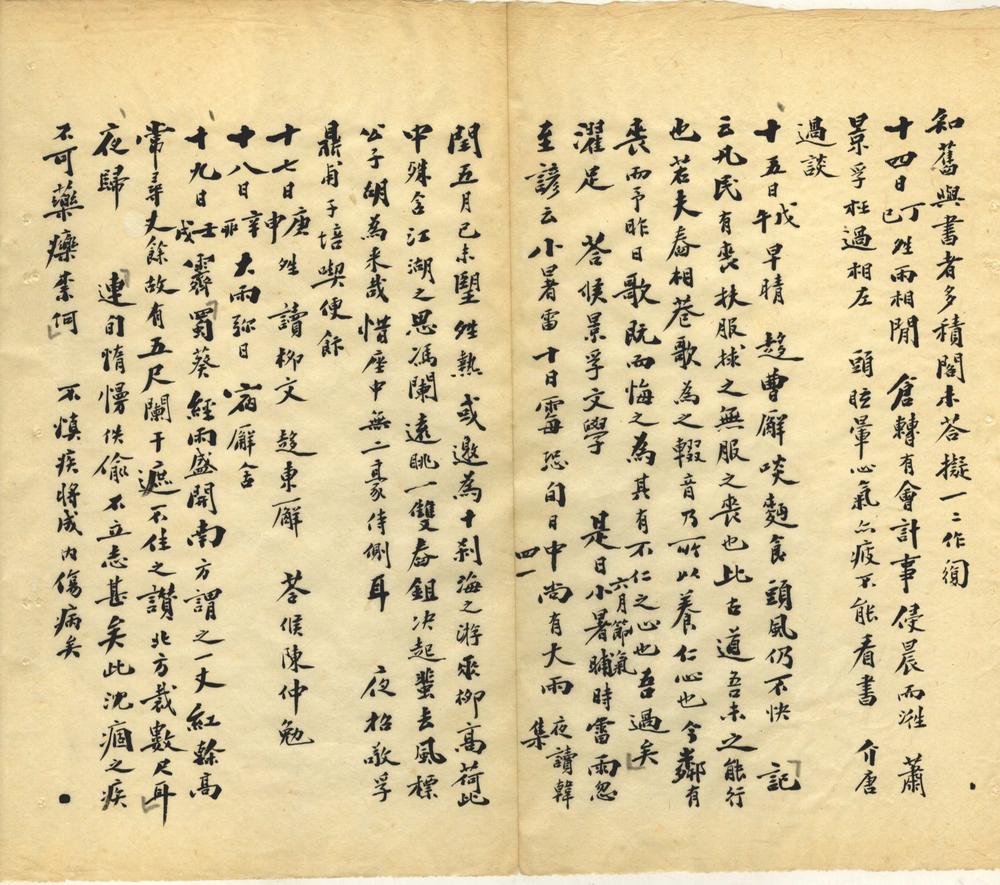 知舊與書者多積閣未荅擬一二作復
十四日丁巳姓雨相閒　倉轉有會計事侵晨而漼　蕭
景孚枉過相左　頭眩暈心氣亦疲不能看書　介唐
過談
十五日戊午早晴　趍曹廨啖麪食頭風仍不快　記
云凡民有喪扶服捄之無服之喪也此古道吾未之能行
也若夫舂相巷歌為之輟音乃所以養仁心也今鄰有
喪而予昨日歌既而悔之為其有不仁之心也吾過矣
濯足　荅候景孚文學　是日小暑六月節氣晡時雷雨忽
至諺云小暑雷十日霉恐旬日中尚有大雨　夜讀韓集
四一
閏五月己未朢姓熱或邀為十刹海之游乘柳高荷此
中殊含江湖之思馮闌遠眺一雙舂鉏決起蜚去風標
公子胡為来哉惜座中無二豪侍側耳　夜招敬孚
鼎甫子培喫便飰
十七日庚申姓　讀柳文　趍東廨　荅候陳仲勉
十八日辛酉大雨彌日　宿廨舍
十九日壬戌霽蜀葵經雨盛開南方謂之一丈紅榦高
常尋丈餘故有五尺闌干遮不住之讚北方裁數尺耳
夜歸　連旬惰慢佚偷不立志甚矣此沈痼之疾
不可藥㾖柰何　不慎疾將成內傷病矣